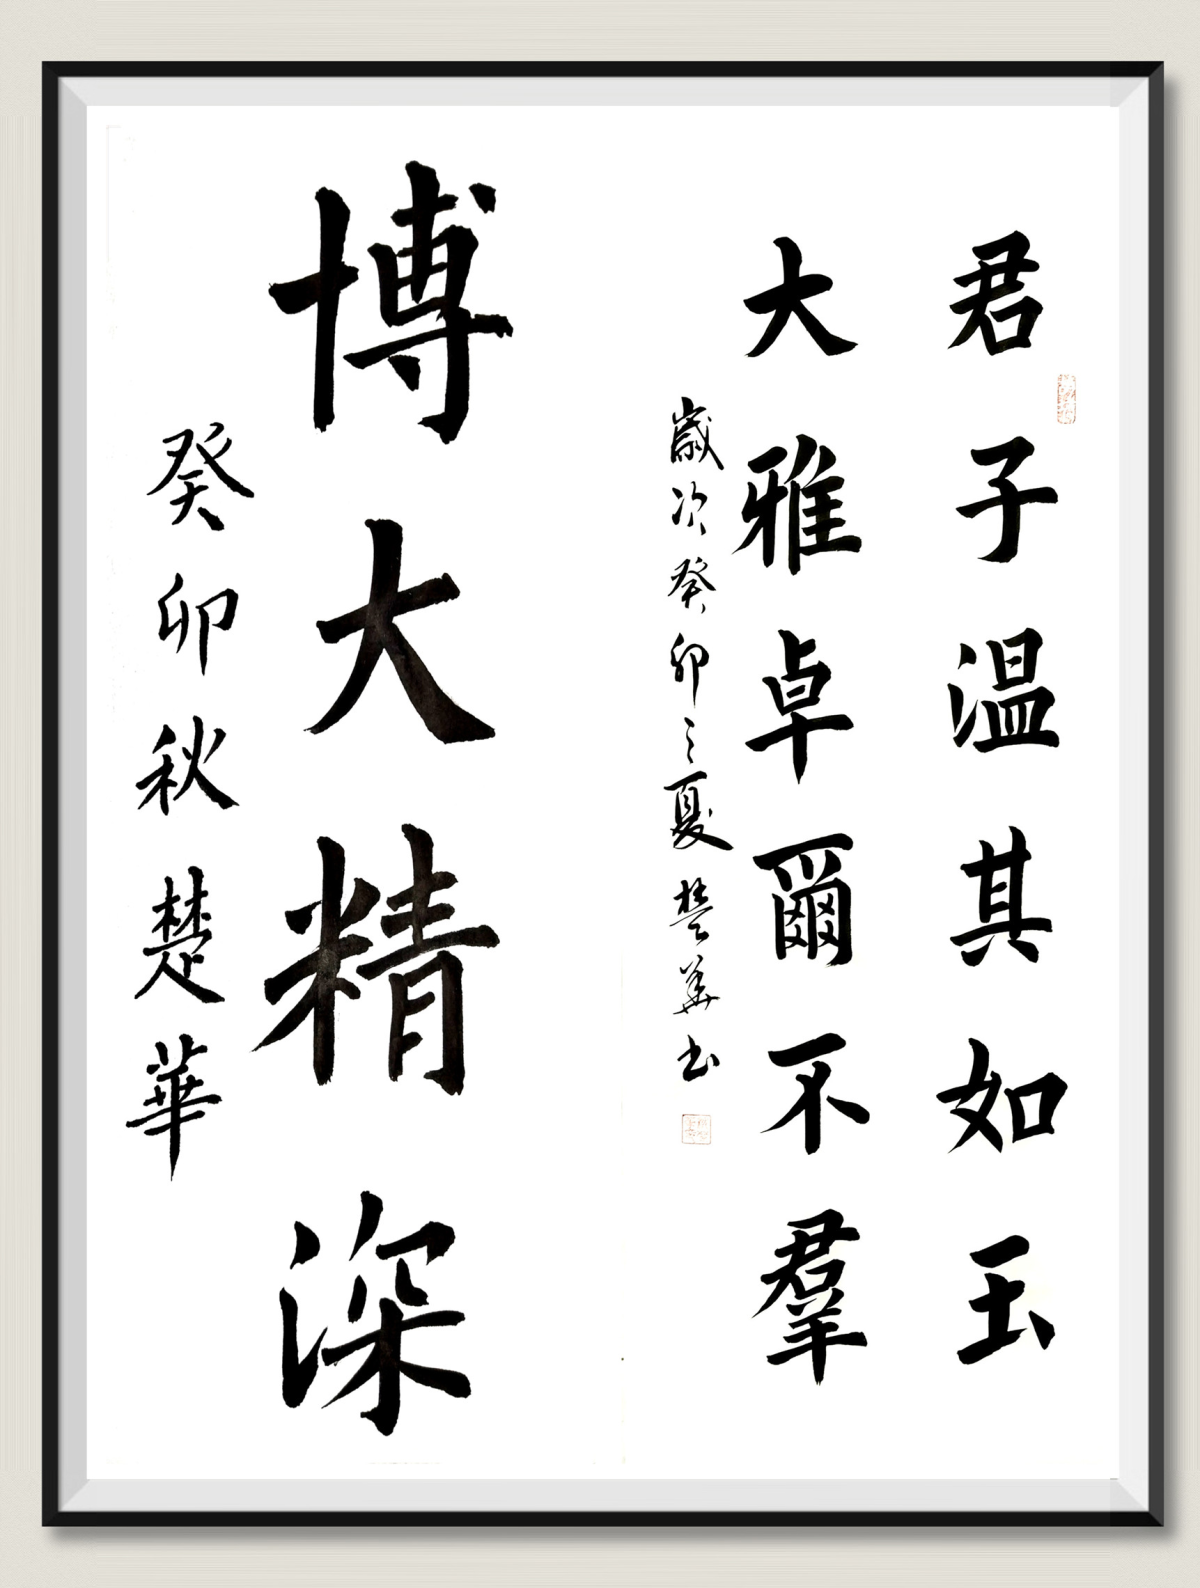 君子温其如玉
大雅卓爾不羣
歲次癸卯之夏楚華书
博大精深
癸卯秋楚華